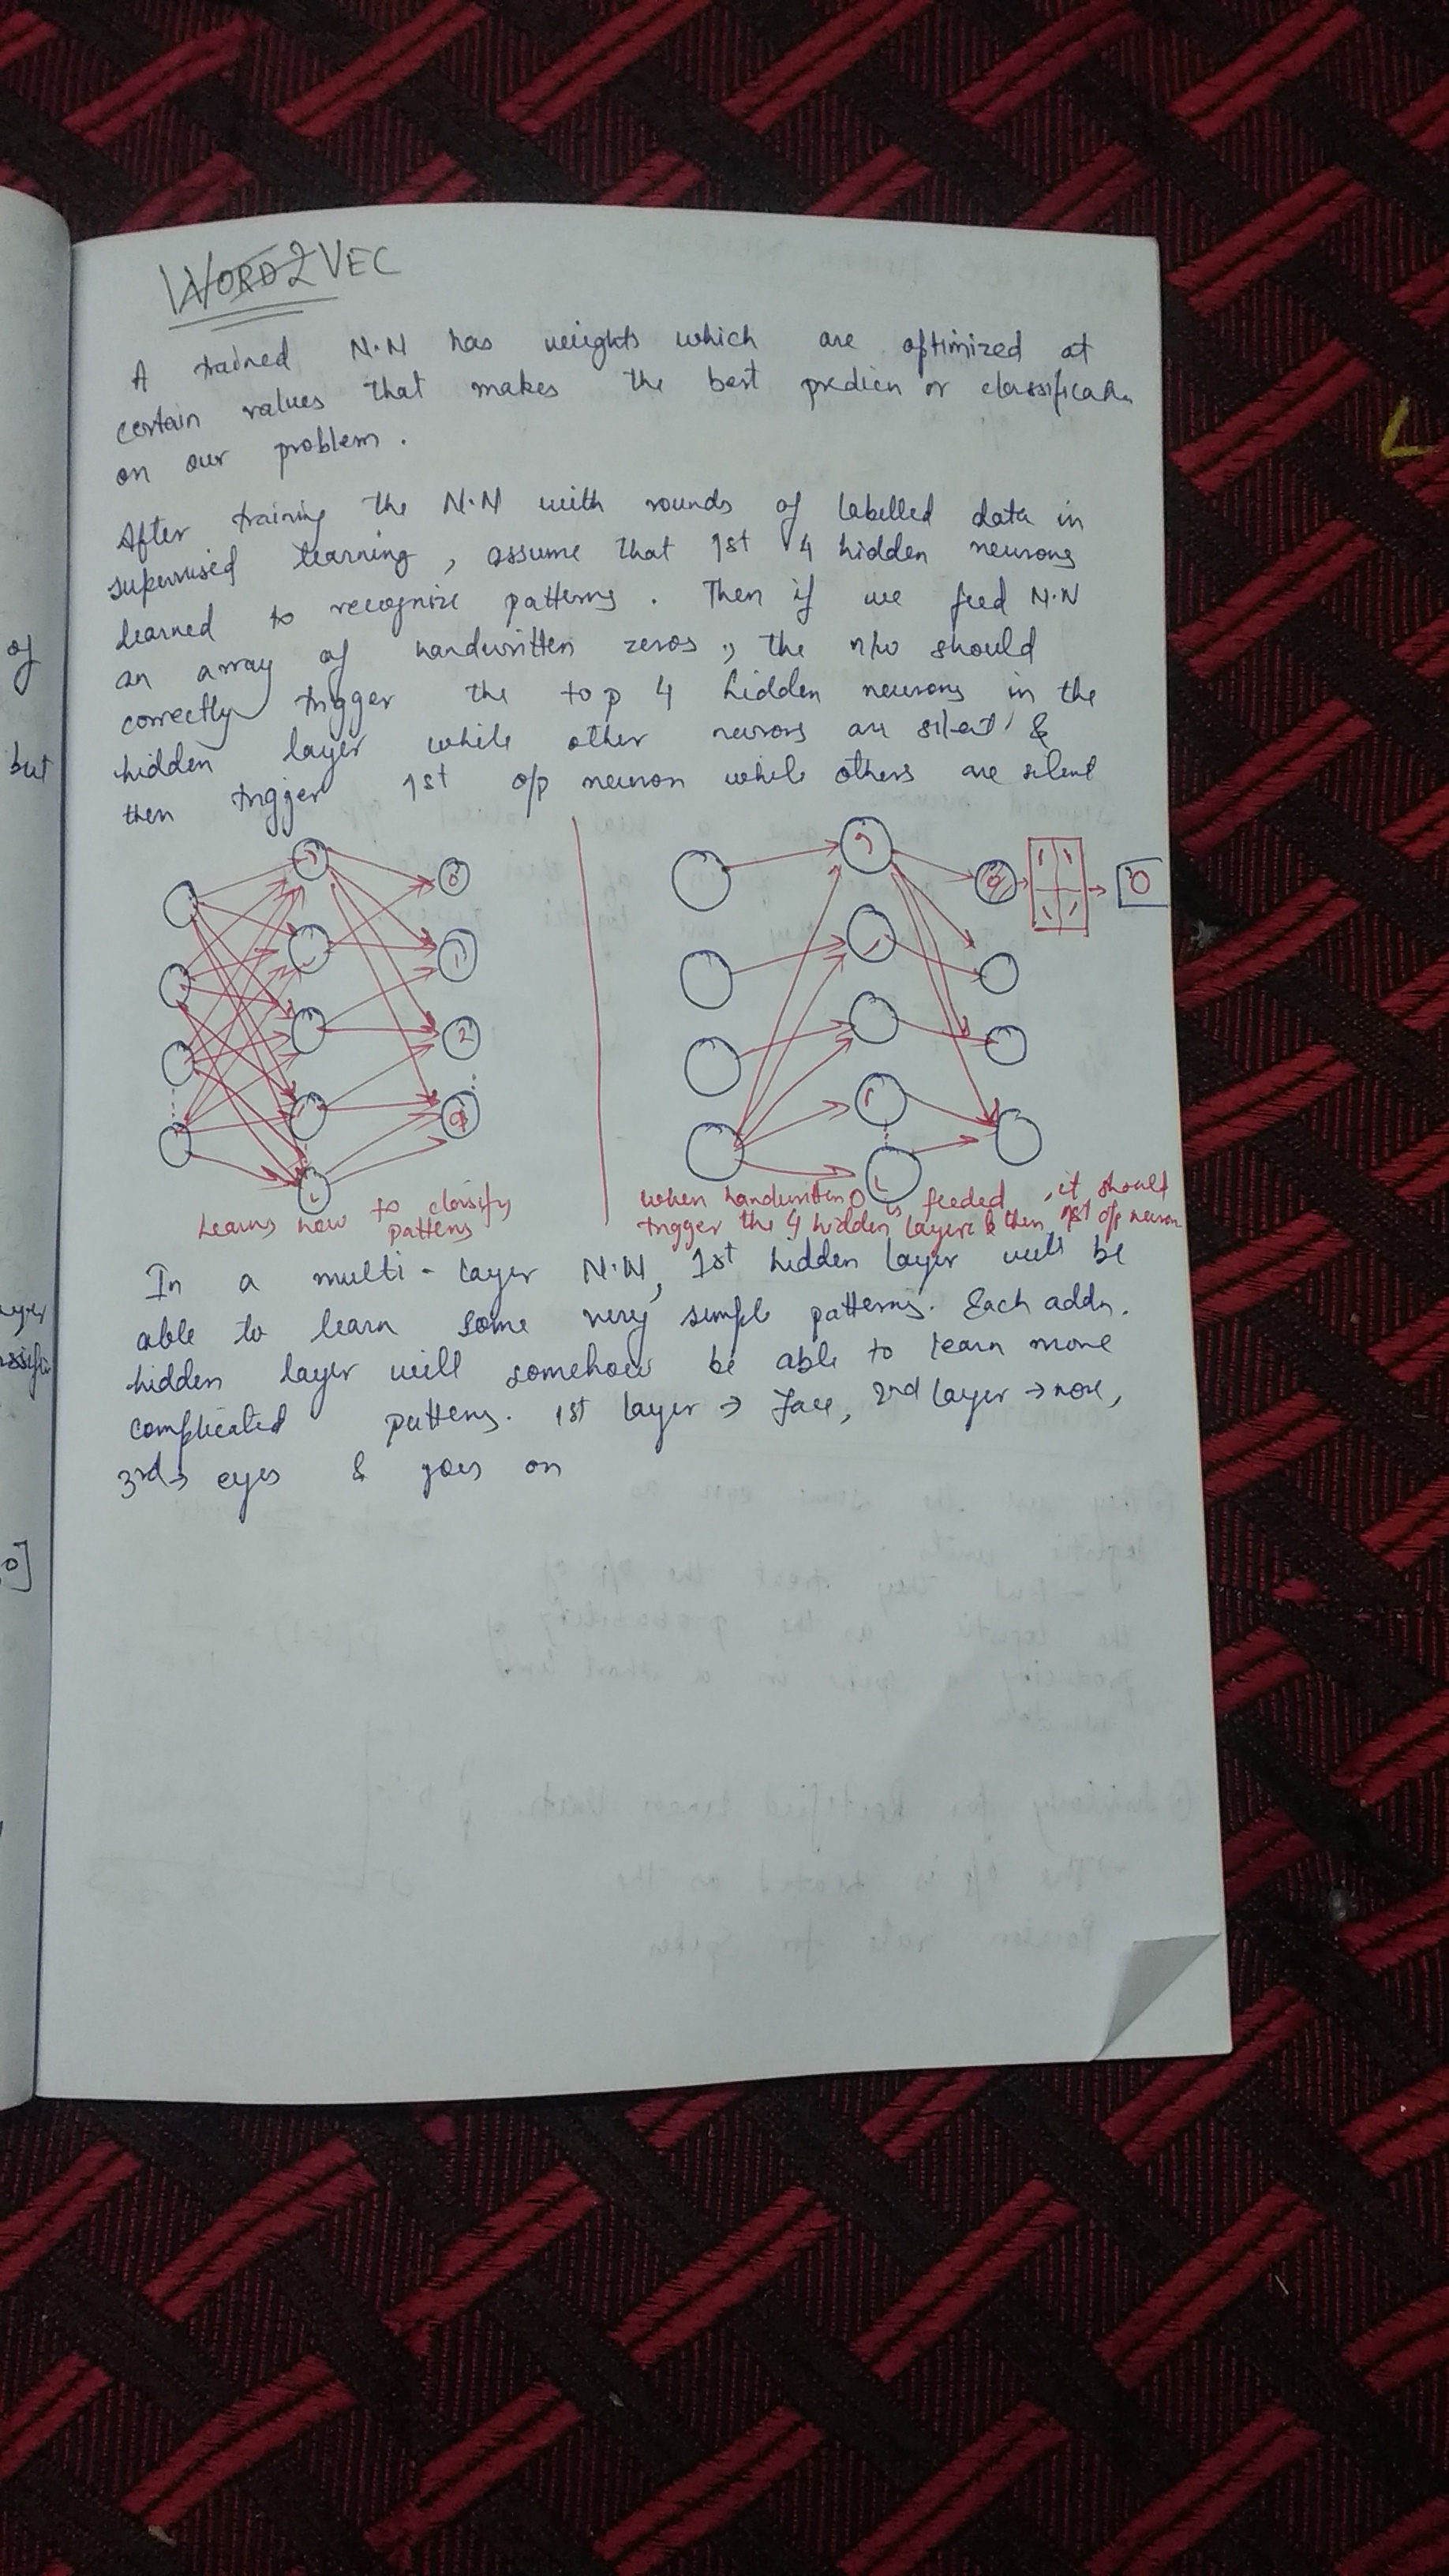 WORD2VEC
A trained N.N has weights which are optimized at
certain values that makes the best predicn or classificatn
on our problem.
After training the N.N with rounds of labelled data in
supervised learning, assume that 1st 4 hidden neurons
learned to recognize patterns. Then if we feed N.N
an array of handwritten zeros, the n/w should
correctly trigger the top 4 hidden neurons in the
hidden layer while other neurons are silent &
then trigger 1st o/p neuron while others are silent
0
1
2
9
0
0
Learns how to classify
patterns
when handwritten 0 is feeded, it should
trigger the 4 hidden layers & then 1st o/p neuron
In a multi-layer N.N, 1st hidden layer will be
able to learn some very simple patterns. Each addn.
hidden layer will somehow be able to learn more
complicated patterns. 1st layer → face, 2nd layer → nose,
3rd → eyes & goes on
of
but